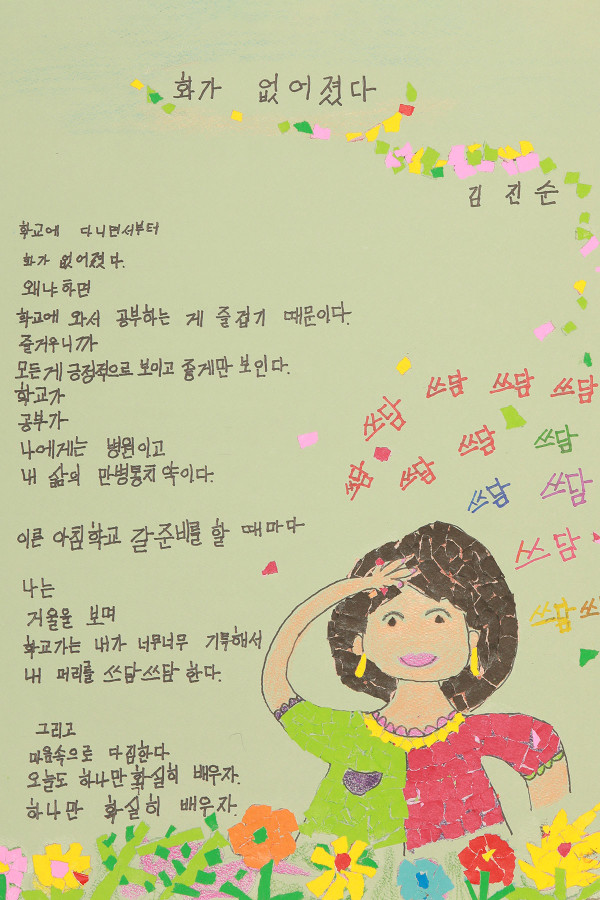 화가 없어졌다
김진순
학교에 다니면서부터
화가 없어졌다.
왜냐하면
학교에 와서 공부하는 게 즐겁기 때문이다.
즐거우니까
모든게 긍정적으로 보이고 좋게만 보인다.
학교가
공부가
나에게는 병원이고
내 삶의 만병통치약이다.
이른 아침학교 갈준비를 할 때마다
나는
거울을 보며
학교가는 내가 너무너무 기특해서
내 머리를 쓰담쓰담 한다.
그리고
마음속으로 다짐한다
오늘도 하나만 확실히 배우자.
하나만 확실히 배우자.
쓰담 쓰담 쓰담 쓰담
쓰담 쓰담 쓰담 쓰담
쓰담 쓰담
쓰담
쓰담 쓰